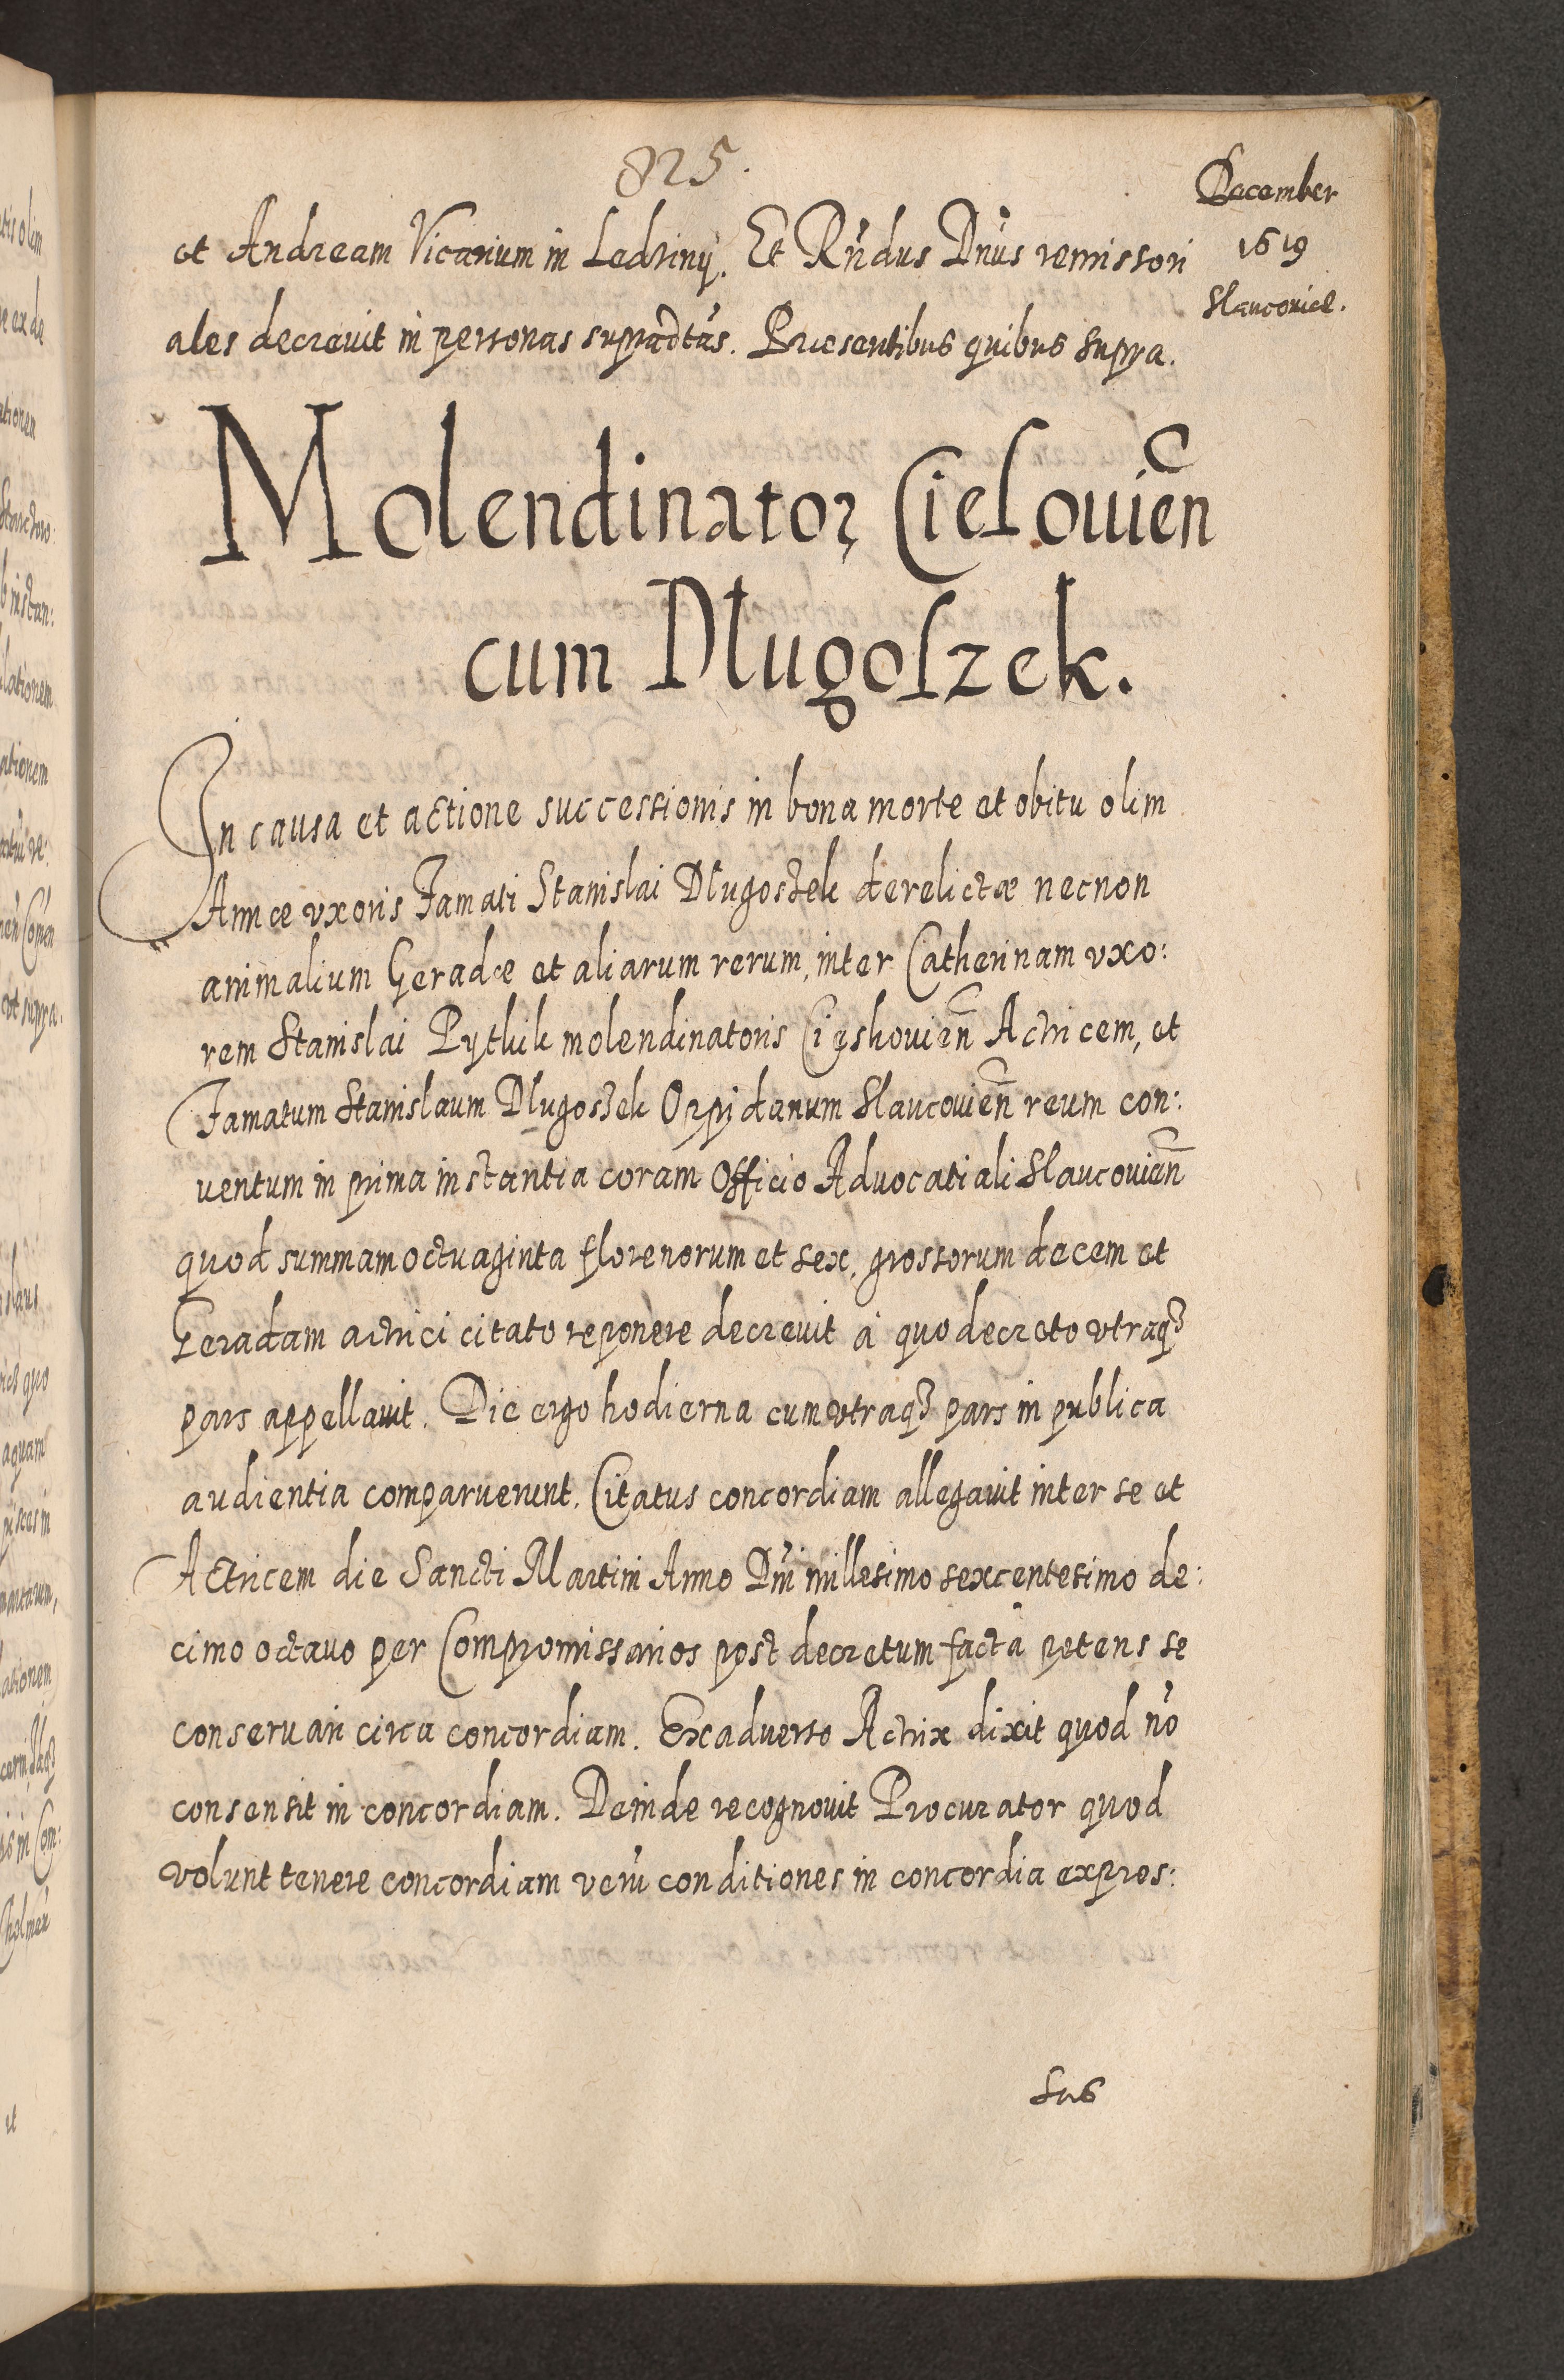 825.
December
1619
Slaucoviæ.
et Andream Vicarium in Ledziny. Et Rñdus Dñus remissori
ales decrevit in personas supradtas. Præsentibus quibus supra.
Molendinator Cieſouieñ
cum Dlugoſzek.
In causa et actione successionis in bona morte et obitu olim
Annæ vxoris Famati Stanislai Dlugoszek derelictæ necnon
animalium Geradæ et aliarum rerum, inter Catherinam vxo:
rem Stanislai Pytlik molendinatoris Cieshouieñ Actricem, et
Famatum Stanislaum Dlugoszek Oppidanum Slaucouieñ reum con:
uentum in prima instantia coram Officio Aduocatiali Slaucouieñ
quod summam octuaginta florenorum et sex, grossorum decem et
Geradam actrici citato reponere decreuit à quo decreto vtraqꝫ
pars appellauit. Die ergo hodierna cum vtraqꝫ pars in publica
audientia comparuerunt. Citatus concordiam allegauit inter se et
Actricem die Sancti Martini Anno Dñi millesimo sexcentesimo de:
cimo octauo per Compromissarios post decretum facta petens se
conseruari circa concordiam. Ex aduerso Actrix dixit quod nõ
consensit in concordiam. Deinde recognouit Procurator quod
volunt tenere concordiam verũ conditiones in concordia expres:
sas